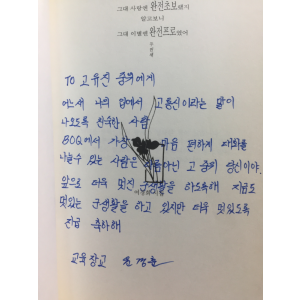 그대 사랑엔 완전초보랬지
알고보니
그대 이별엔 완전프로였어
TO 고유진 중위에게
어느새 나의 입에서 고통신이라는 말이
나오도록 친숙한 사람
BOQ에서 가장 마음 편하게 대화를
나눌수 있는 사람은 다름아닌 고 중위 당신이야.
앞으로 더욱 멋진 군생활을 하도록해 지금도
멋있는 군생활을 하고 있지만 더욱 멋있도록
진급 축하해
교육장교